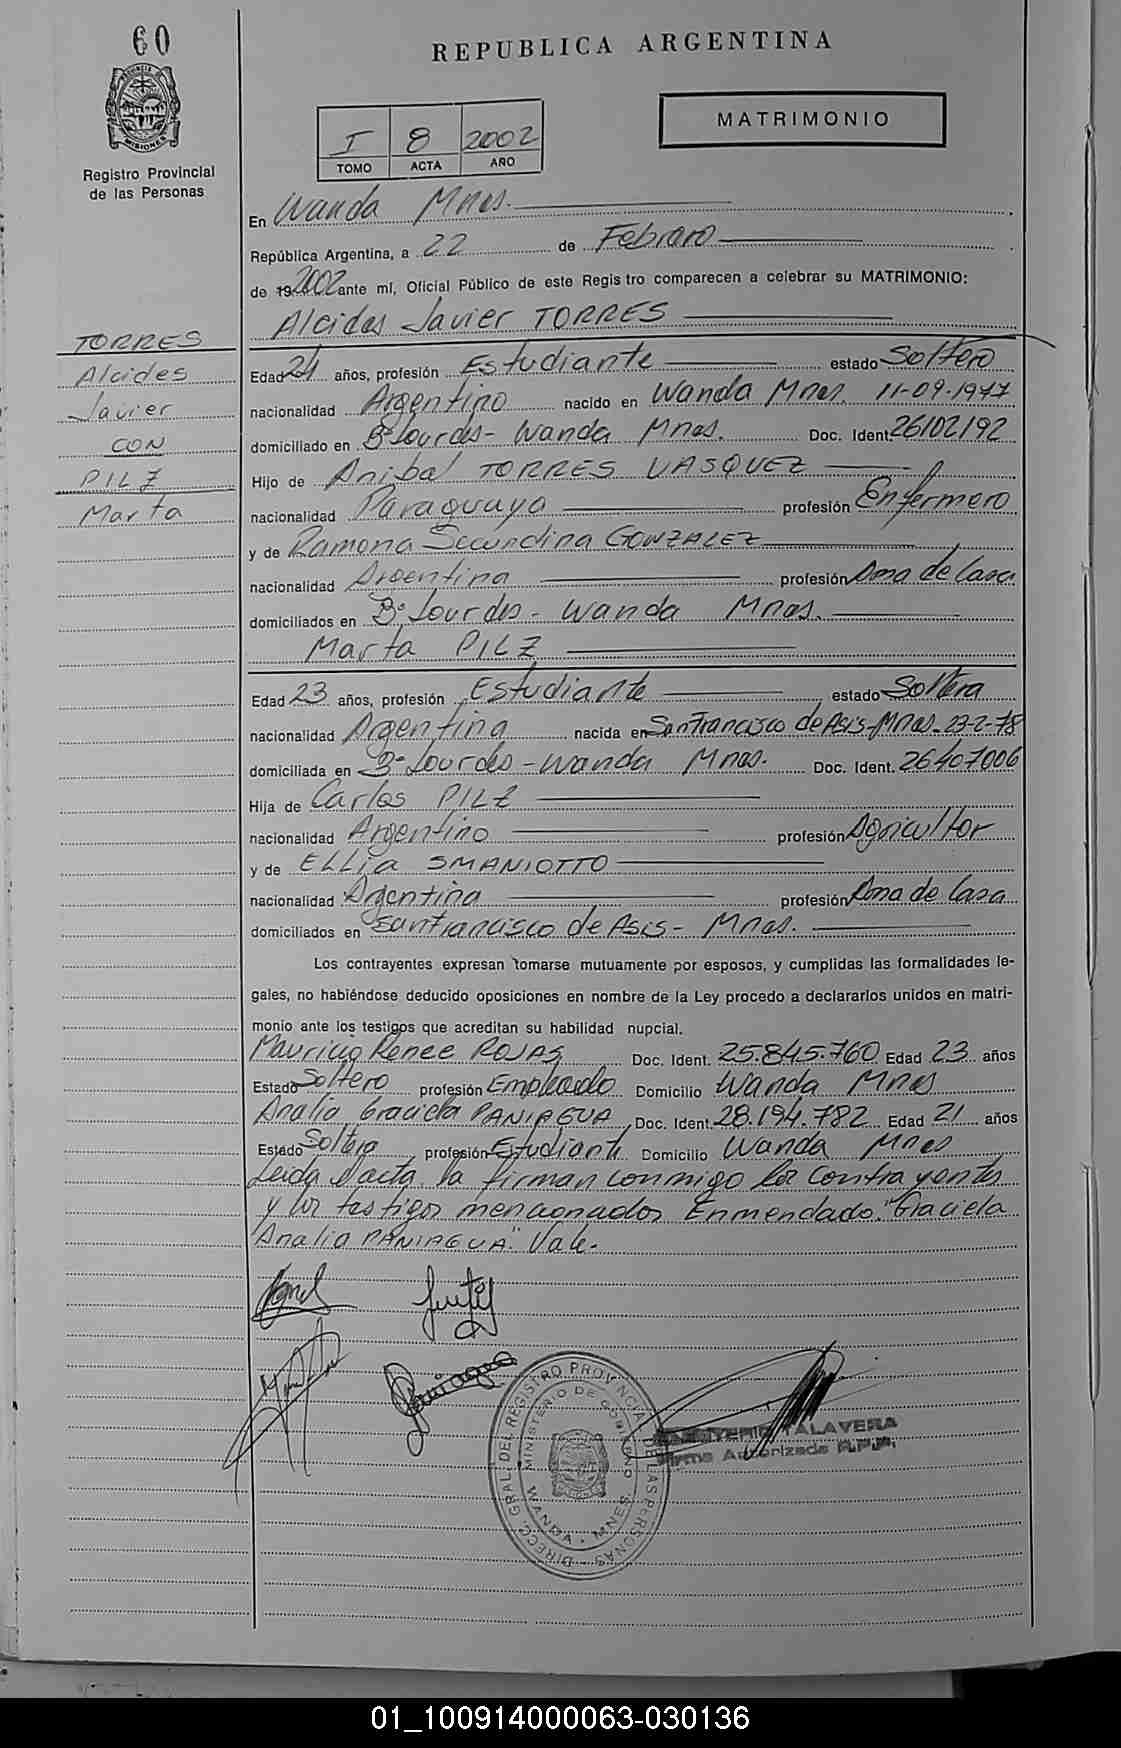 60
REPUBLICA ARGENTINA
MATRIMONIO
I 8 2002
TOMO ACTA AÑO
Registro Provincial
de las Personas
En Wanda Mnes.
República Argentina, a 22 de Febrero
de 19 2002 ante mí, Oficial Público de este Registro comparecen a celebrar su MATRIMONIO:
Alcides Javier TORRES
TORRES
Alcides
Javier
CON
PILZ
Marta
Edad 24 años, profesión Estudiante estado Soltero
nacionalidad Argentino nacido en Wanda Mnes. 11-09-1977
domiciliado en Bº Lourdes - Wanda Mnes. Doc. Ident. 26102192
Hijo de Anibal TORRES VASQUEZ
nacionalidad Paraguaya profesión Enfermero
y de Ramona Secundina GONZALEZ
nacionalidad Argentina profesión Ama de Casa
domiciliados en Bº Lourdes - Wanda Mnes.
Marta PILZ
Edad 23 años, profesión Estudiante estado Soltera
nacionalidad Argentina nacida en San Francisco de Asis - Mnes. 23-2-78
domiciliada en Bº Lourdes - Wanda Mnes. Doc. Ident. 26407006
Hija de Carlos PILZ
nacionalidad Argentino profesión Agricultor
y de ELLIA SMANIOTTO
nacionalidad Argentina profesión Ama de Casa
domiciliados en San Francisco de Asis - Mnes.
Los contrayentes expresan tomarse mutuamente por esposos, y cumplidas las formalidades le-
gales, no habiéndose deducido oposiciones en nombre de la Ley procedo a declararlos unidos en matri-
monio ante los testigos que acreditan su habilidad nupcial.
Mauricio Renee ROJAS Doc. Ident. 25.845.760 Edad 23 años
Estado Soltero profesión Empleado Domicilio Wanda Mnes
Analia Graciela PANIAGUA Doc. Ident. 28.194.782 Edad 21 años
Estado Soltera profesión Estudiante Domicilio Wanda Mnes
Leida el acta, la firman conmigo los Contrayentes
y los testigos mencionados. Enmendado: "Graciela
Analia PANIAGUA". Vale.
DIRECC. GRAL. DEL REGISTRO PROVINCIAL DE LAS PERSONAS
MINISTERIO DE GOBIERNO
WANDA - MNES.
TALAVERA
Firma Autorizada R.P.P.
01_100914000063-030136